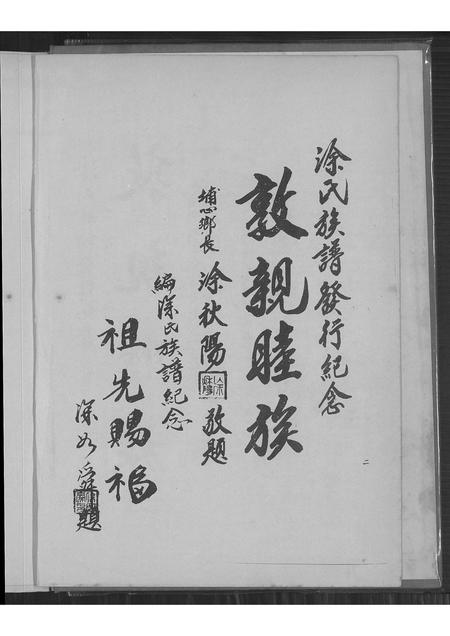 涂氏族譜發行紀念
敦親睦族
埔心鄉長 涂秋陽 敬題
編涂氏族譜紀念
祖先賜福
涂 舜 題
二